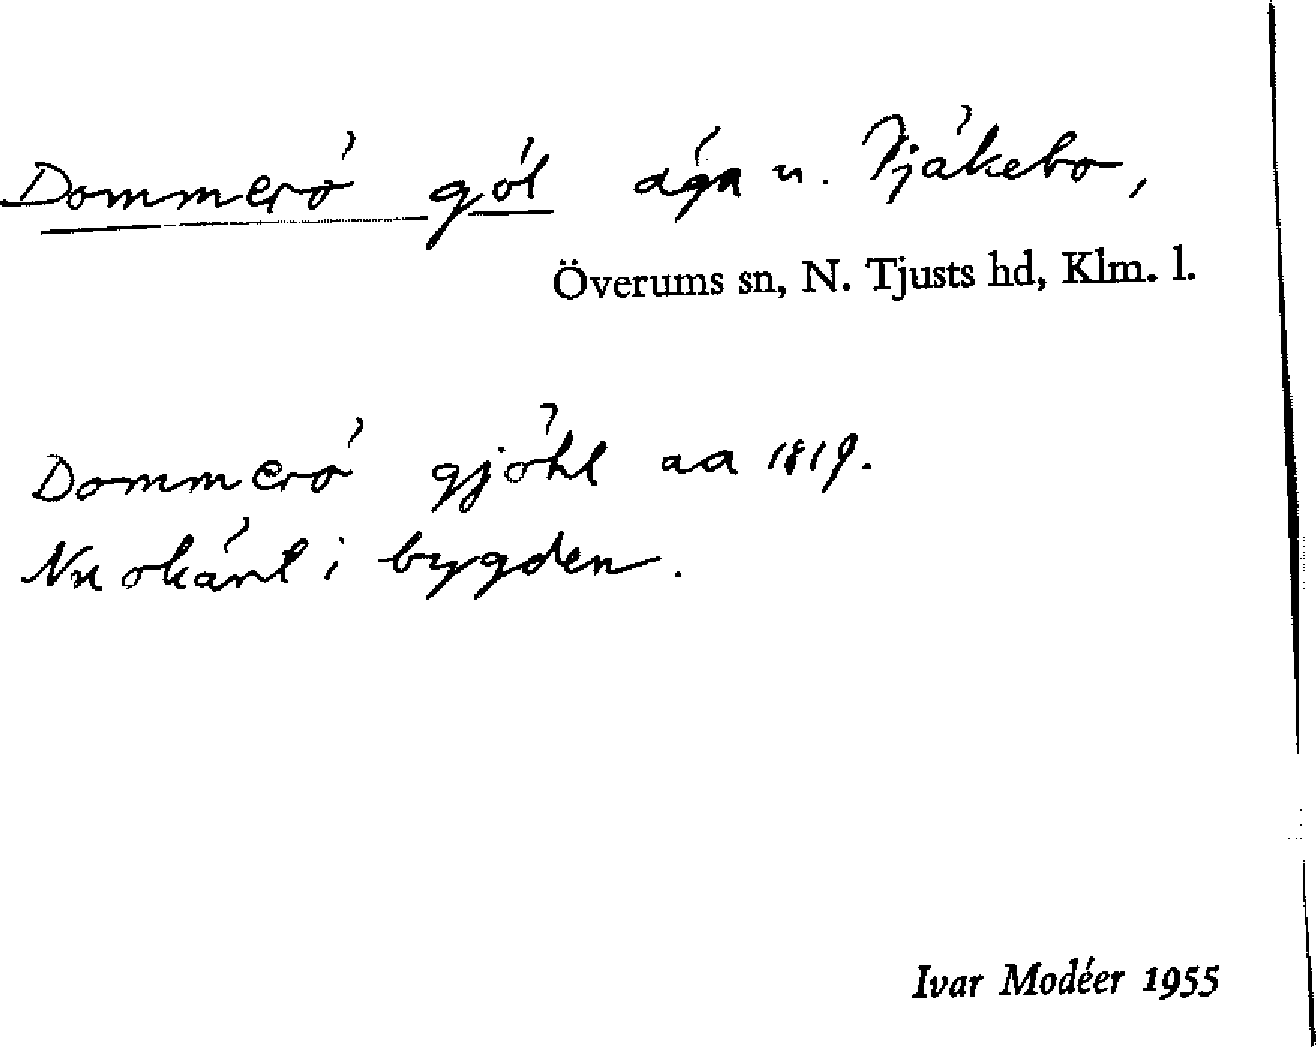 Dommerö göl äga u. Fjäkebo,
Överums sn, N. Tjusts hd, Klm. l.
Dommerö gjöhl aa 1819.
Nu okänt i bygden.
Ivar Modéer 1955